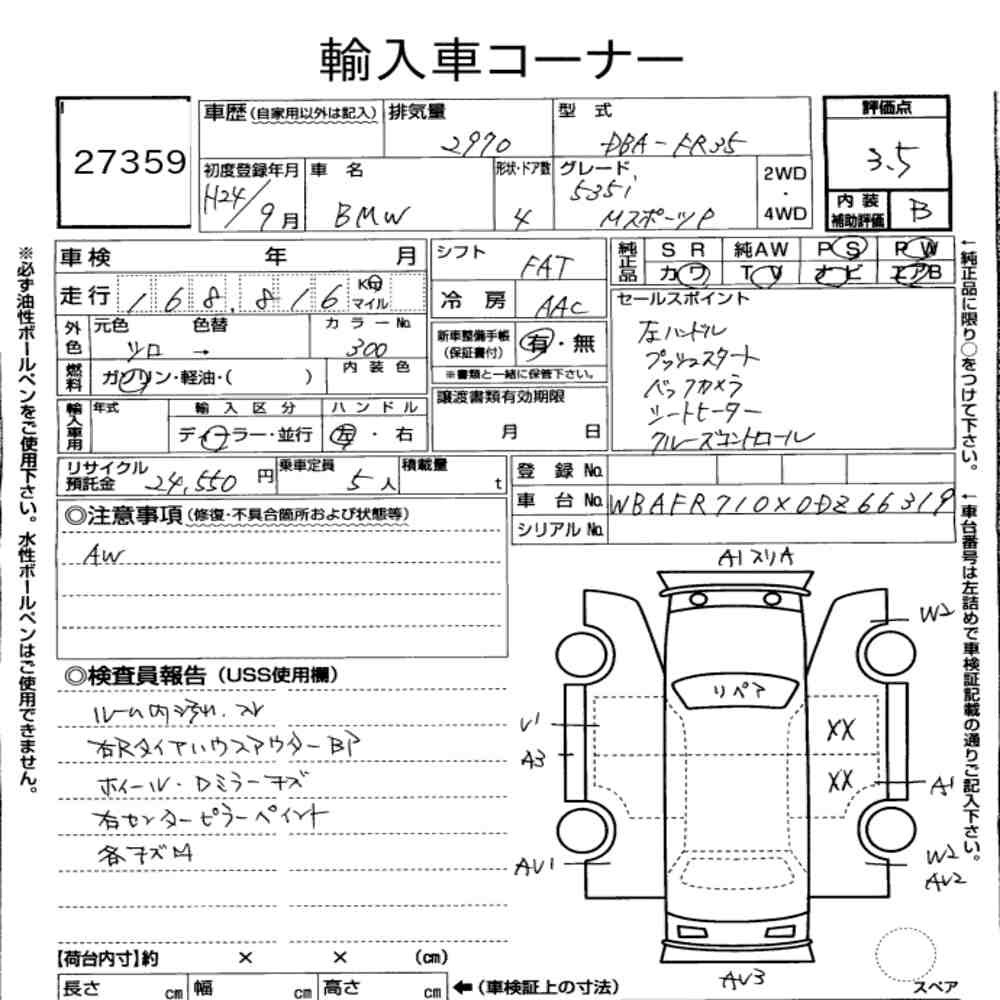 輸入車コーナー
27359
車歴(自家用以外は記入)
排気量
2970
型 式
DBA-FR35
評価点
3.5
初度登録年月
H24/9月
車 名
BMW
形状・ドア数
4
グレード
535i
MスポーツP
2WD
・
4WD
内 装
補助評価
B
車検 年 月
シフト
FAT
純正品
SR 純AW PS PW
カワ TV ナビ エアB
走行 168,816 Km マイル
冷 房
AAC
セールスポイント
左ハンドル
プッシュスタート
バックカメラ
シートヒーター
クルーズコントロール
外色
元色 色替
シロ →
カラーNo.
300
新車整備手帳
(保証書付)
有・無
※書類と一緒に保管下さい。
燃料
ガソリン・軽油・( )
内装色
譲渡書類有効期限
月 日
輸入車用
年式
輸入区分
ディーラー・並行
ハンドル
左・右
リサイクル
預託金 24,550 円
乗車定員
5人
積載量
t
登録No.
車台No. WBAFR710X0DZ66319
シリアルNo.
◎注意事項(修復・不具合箇所および状態等)
AW
◎検査員報告(USS使用欄)
ルーム内汚れ、スレ
右RタイヤハウスアウターBP
ホイール・Dミラーキズ
右センターピラーペイント
各キズ凹
A1スリA
W2
リペア
U1
XX
A3
XX
A1
AU1
W2
AU2
AU3
スペア
【荷台内寸】約 × × (cm)
長さ cm 幅 cm 高さ cm ←(車検証上の寸法)
※必ず油性ボールペンをご使用下さい。水性ボールペンはご使用できません。
←純正品に限り○をつけて下さい。
←車台番号は左詰めで車検証記載の通りご記入下さい。